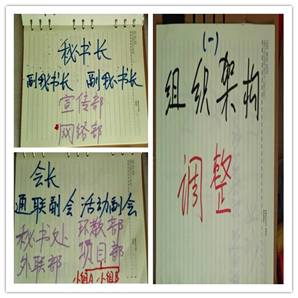 秘书长
副秘书长 副秘书长
宣传部
网络部
会长
通联副会 活动副会
秘书处 环教部
外联部 项目部
小组A 小组B
(一)
组织架构
调整